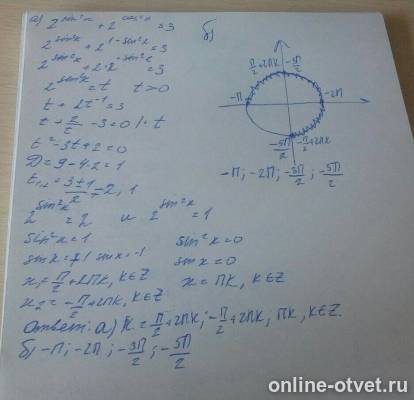 а) 2^sin²x + 2^cos²x = 3
2^sin²x + 2^1-sin²x = 3
2^sin²x + 2·2^-sin²x = 3
2^sin²x = t t>0
t + 2t⁻¹ = 3
t + 2/t - 3 = 0 | · t
t² - 3t + 2 = 0
D = 9 - 4·2 = 1
t₁,₂ = 3±1/2 = 2, 1
2^sin²x = 2 и 2^sin²x = 1
sin²x = 1 sin²x = 0
sinx = 1 sinx = -1 sinx = 0
x₁ = π/2 + 2πk, k∈Z x = πk, k∈Z
x₂ = -π/2 + 2πk, k∈Z
Ответ: а) x = π/2 + 2πk; -π/2 + 2πk, πk, k∈Z.
б) -π; -2π; -3π/2; -5π/2
б)
π/2 + 2πk -3π/2
-π -2π
-5π/2 -π/2 + 2πk
-π; -2π; -3π/2; -5π/2
online-otvet.ru